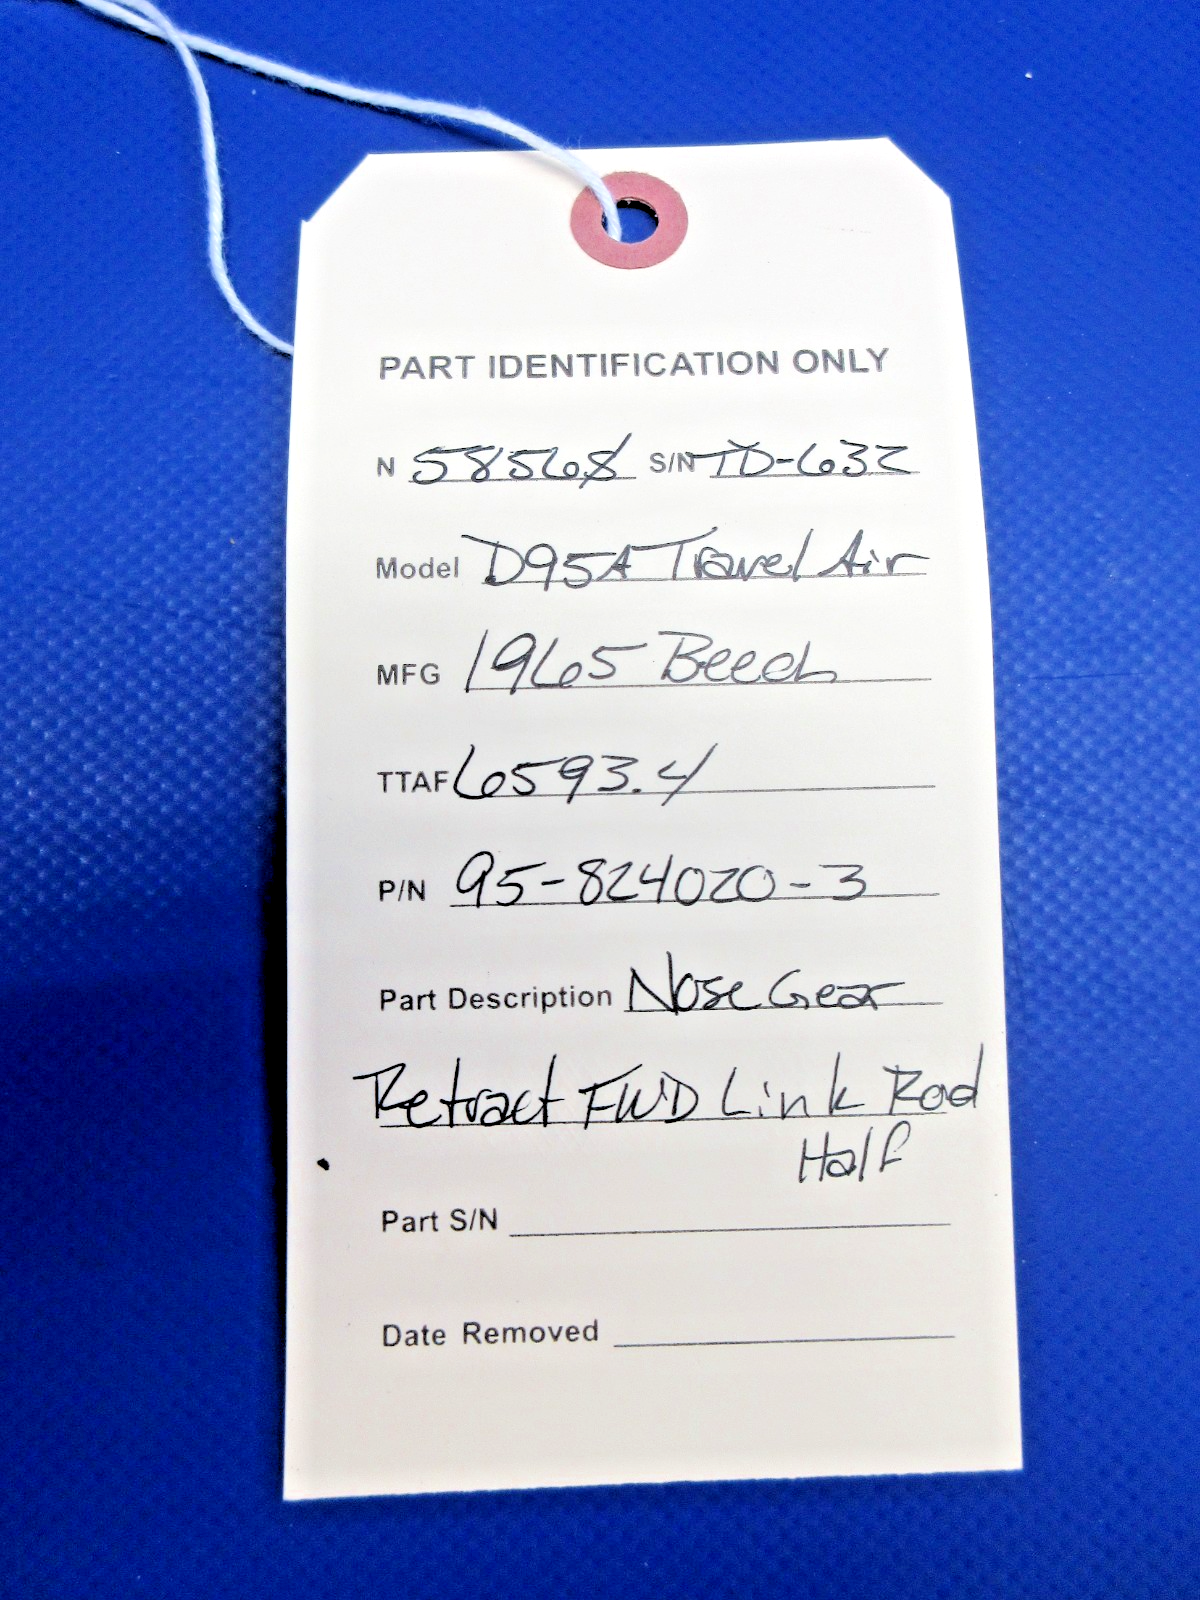 PART IDENTIFICATION ONLY
N 58568 S/N TD-632
Model D95A Travel Air
MFG 1965 Beech
TTAF 6593.4
P/N 95-824020-3
Part Description Nose Gear
Retract FWD Link Rod
Half
Part S/N
Date Removed